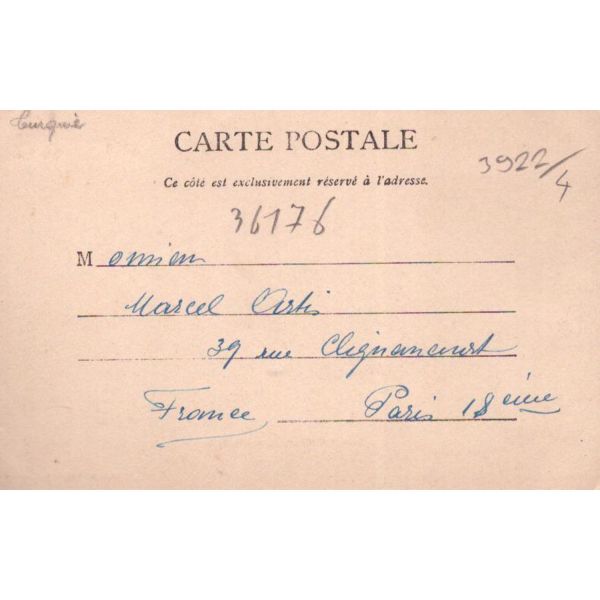 Turquie
CARTE POSTALE
Ce côté est exclusivement réservé à l'adresse.
3922/4
36176
Monsieur
Marcel Artis
39 rue Clignancourt
France Paris 18 ème